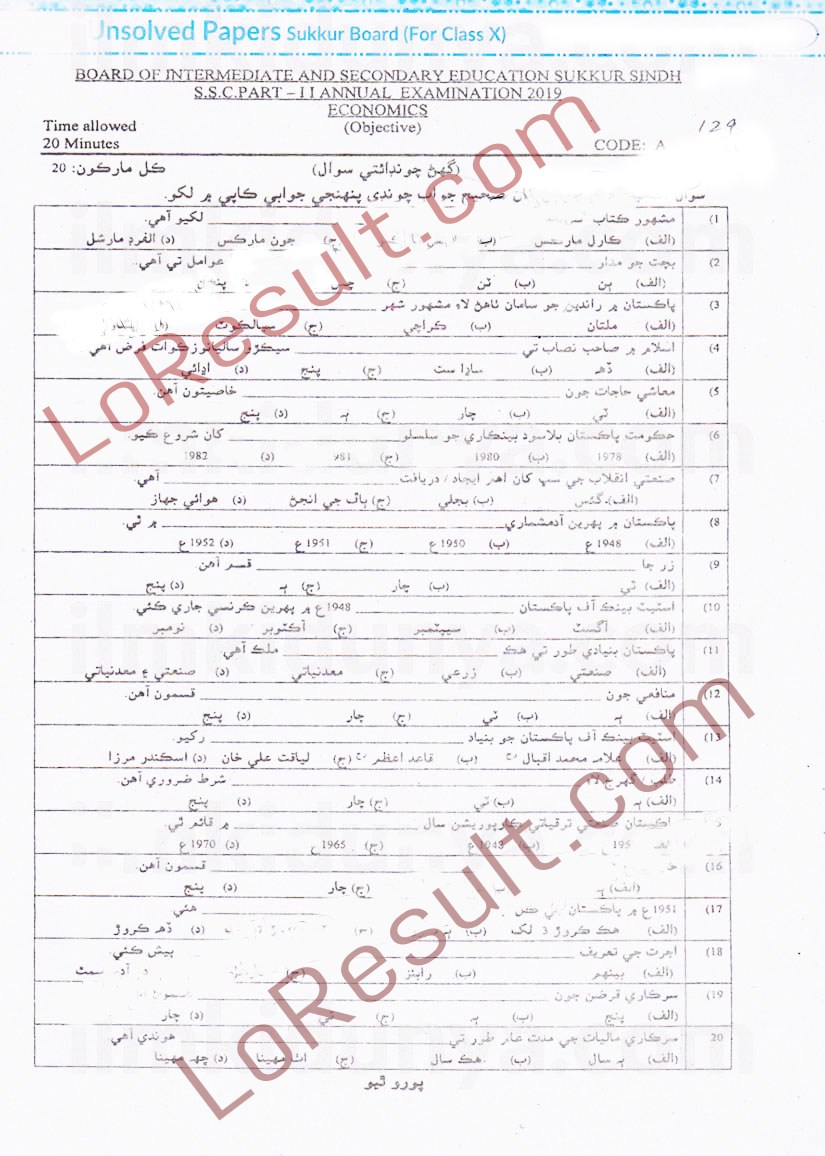 Unsolved Papers Sukkur Board (For Class X)
BOARD OF INTERMEDIATE AND SECONDARY EDUCATION SUKKUR SINDH
S.S.C.PART – I I ANNUAL EXAMINATION 2019
ECONOMICS
Time allowed (Objective) 129
20 Minutes CODE: A
(گهڻ چونڊائتي سوال) ڪل مارڪون: 20
صحيح جواب چونڊي پنهنجي جوابي ڪاپي ۾ لکو.
(1 مشهور ڪتاب ________ لکيو آهي.
(الف) ڪارل مارڪس (ب) (ج) جون مارڪس (د) الفرڊ مارشل
(2 بچت جو مدار ________ عوامل تي آهي.
(الف) ٻن (ب) ٽن (ج) (د)
(3 پاڪستان ۾ راندين جو سامان ٺاهڻ لاءِ مشهور شهر ________
(الف) ملتان (ب) ڪراچي (ج) سيالڪوٽ
(4 اسلام ۾ صاحب نصاب تي ________ سيڪڙو ساليانو زڪوات فرض آهي
(الف) ڏهه (ب) ساڍا ست (ج) پنج (د) اڍائي
(5 معاشي حاجات جون ________ خاصيتون آهن.
(الف) ٽي (ب) چار (ج) ٻه (د) پنج
(6 حڪومت پاڪستان بلاسود بينڪاري جو سلسلو ________ کان شروع ڪيو.
(الف) 1978 (ب) 1980 (ج) 1981 (د) 1982
(7 صنعتي انقلاب جي سڀ کان اهم ايجاد / دريافت ________ آهي.
(الف) گئس (ب) بجلي (ج) ٻاڦ جي انجڻ (د) هوائي جهاز
(8 پاڪستان ۾ پهرين آدمشماري ________ ۾ ٿي.
(الف) 1948ع (ب) 1950ع (ج) 1951ع (د) 1952ع
(9 زر جا ________ قسم آهن.
(الف) ٽي (ب) چار (ج) ٻه (د) پنج
(10 اسٽيٽ بينڪ آف پاڪستان ________ 1948ع ۾ پهرين ڪرنسي جاري ڪئي.
(الف) آگسٽ (ب) سيپٽمبر (ج) آڪٽوبر (د) نومبر
(11 پاڪستان بنيادي طور تي هڪ ________ ملڪ آهي.
(الف) صنعتي (ب) زرعي (ج) معدنياتي (د) صنعتي ۽ معدنياتي
(12 منافعي جون ________ قسمون آهن.
(الف) ٻه (ب) ٽي (ج) چار (د) پنج
(13 اسٽيٽ بينڪ آف پاڪستان جو بنياد ________ رکيو.
(الف) علامه محمد اقبال (ب) قائد اعظم (ج) لياقت علي خان (د) اسڪندر مرزا
(14 طلب / گهرج لاءِ ________ شرط ضروري آهن.
(الف) ٻه (ب) ٽي (ج) چار (د) پنج
پاڪستان صنعتي ترقياتي ڪارپوريشن سال ________ ۾ قائم ٿي.
(ب) 1948ع (ج) 1965ع (د) 1970ع
(16 ________ قسمون آهن.
(الف) ٻه (ب) (ج) چار (د) پنج
(17 1951ع ۾ پاڪستان ________ هئي
(الف) هڪ ڪروڙ 3 لک (ب) (ج) (د) ڏهه ڪروڙ
(18 اجرت جي تعريف ________ پيش ڪئي.
(الف) بينهم (ب) رابنز (ج) سمٿ
(19 سرڪاري قرضن جون ________
(الف) پنج (ب) ٻه (ج) ٽي (د) چار
20 سرڪاري ماليات جي مدت عام طور تي ________ هوندي آهي
(الف) ٻه سال (ب) هڪ سال (ج) اٺ مهينا (د) ڇهه مهينا
پورو ٿيو
LoResult.com
LoResult.com